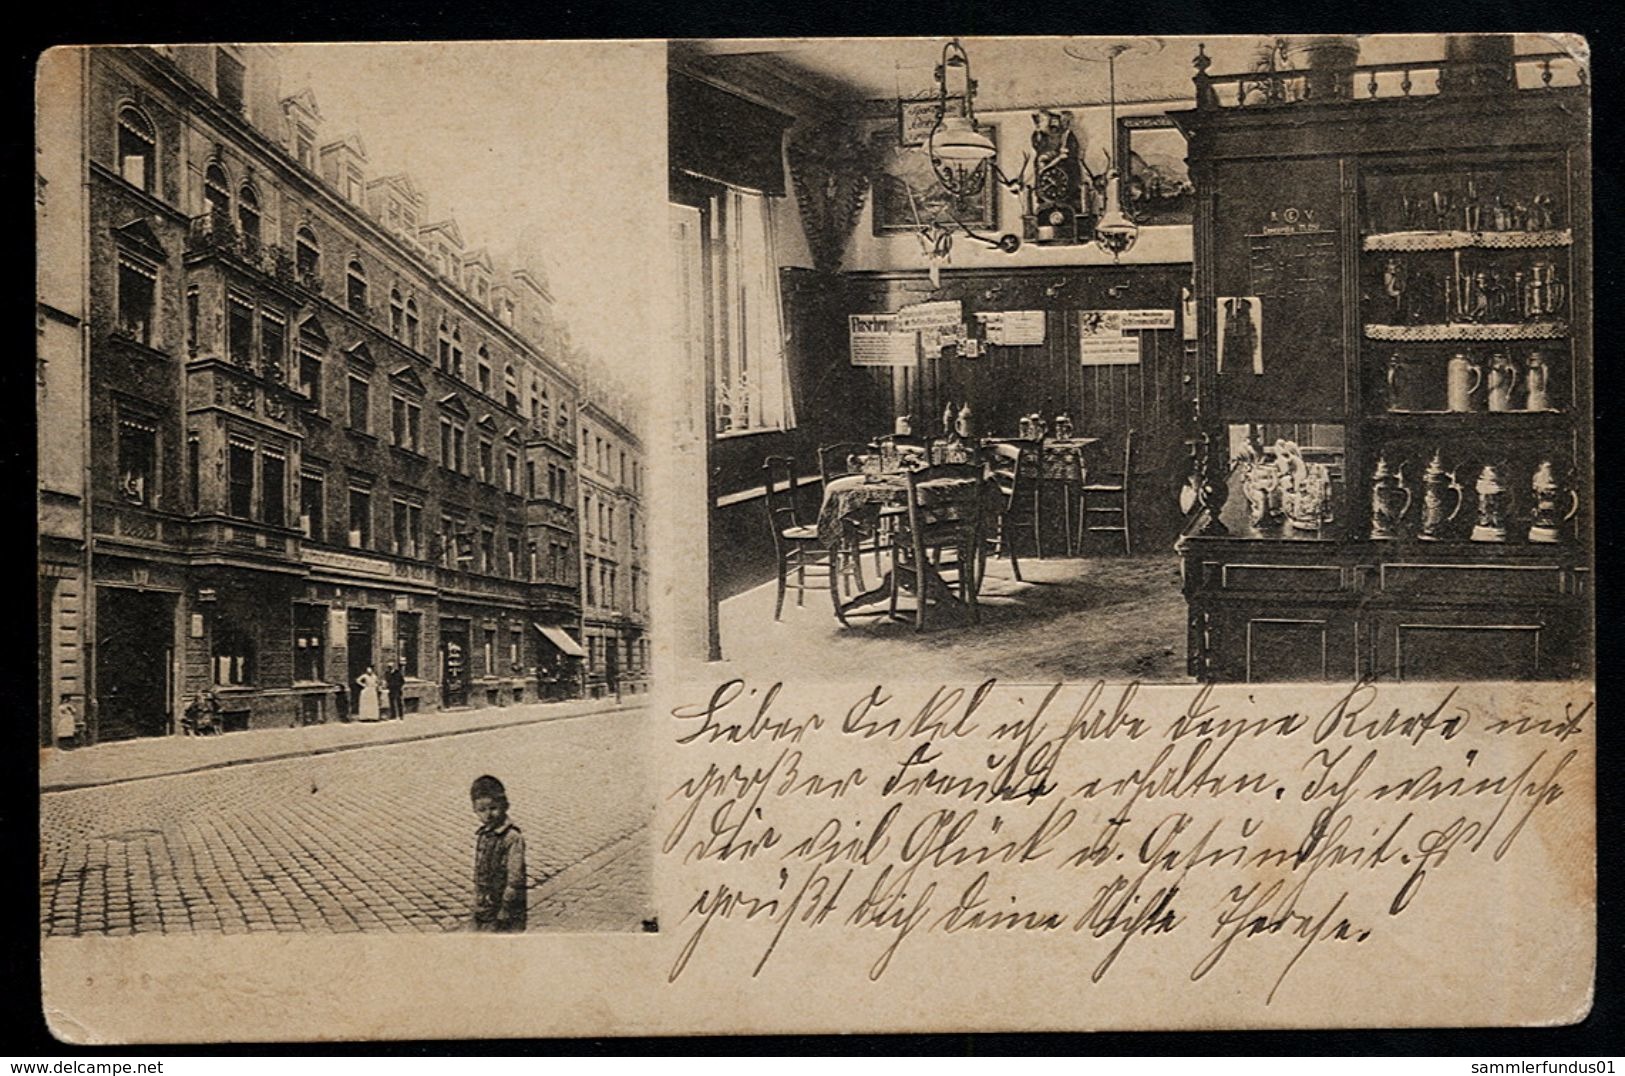 Flaschen
Lieber Onkel ich habe deine Karte mit
großer Freude erhalten. Ich wünsche
dir viel Glück u. Gesundheit. Es
grüßt dich deine Nichte Therese.
www.delcampe.net
sammlerfundus01